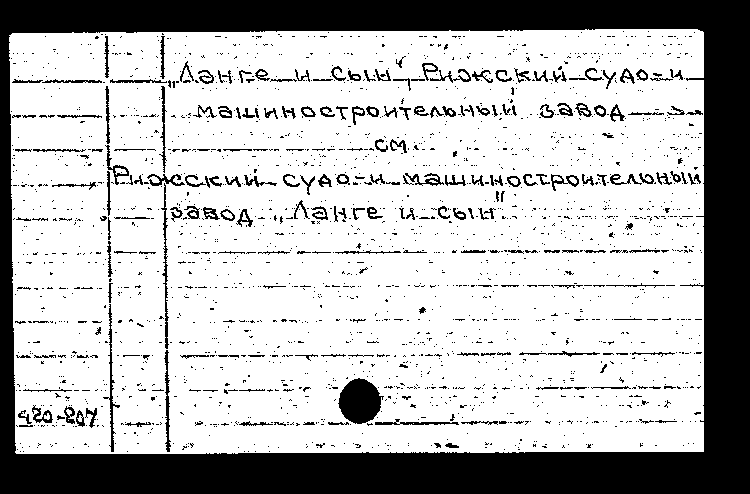 „Ланге и сын", Рижский судо-и
машиностроительный завод
см.
Рижский судо-и машиностроительный
завод „Ланге и сын"
420-207